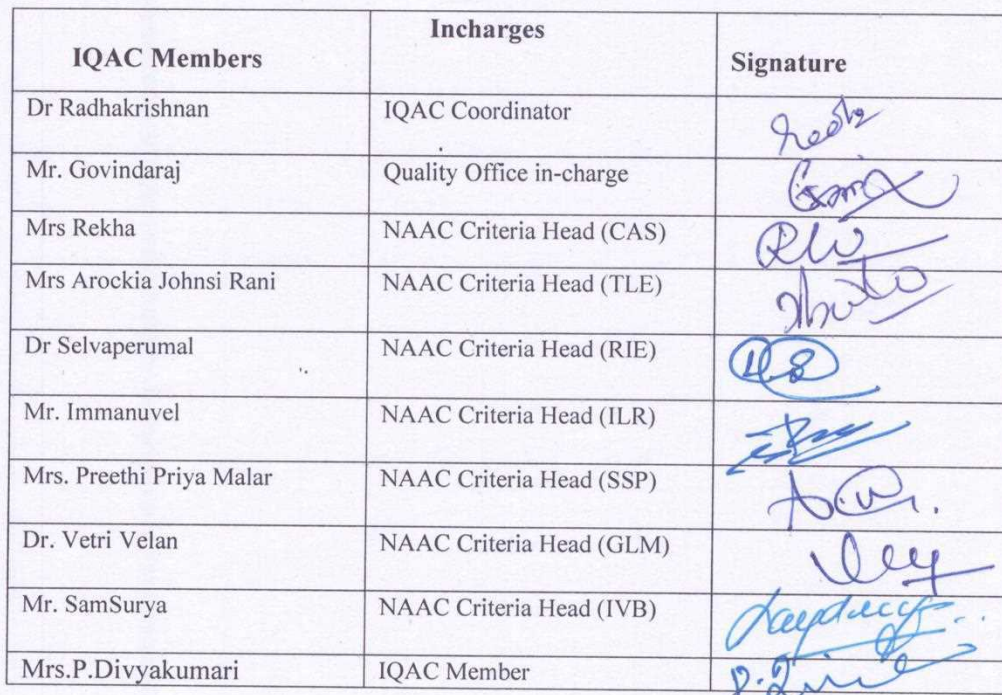 IQAC Members Incharges Signature
Dr Radhakrishnan IQAC Coordinator
Mr. Govindaraj Quality Office in-charge
Mrs Rekha NAAC Criteria Head (CAS)
Mrs Arockia Johnsi Rani NAAC Criteria Head (TLE)
Dr Selvaperumal NAAC Criteria Head (RIE)
Mr. Immanuvel NAAC Criteria Head (ILR)
Mrs. Preethi Priya Malar NAAC Criteria Head (SSP)
Dr. Vetri Velan NAAC Criteria Head (GLM)
Mr. SamSurya NAAC Criteria Head (IVB)
Mrs.P.Divyakumari IQAC Member